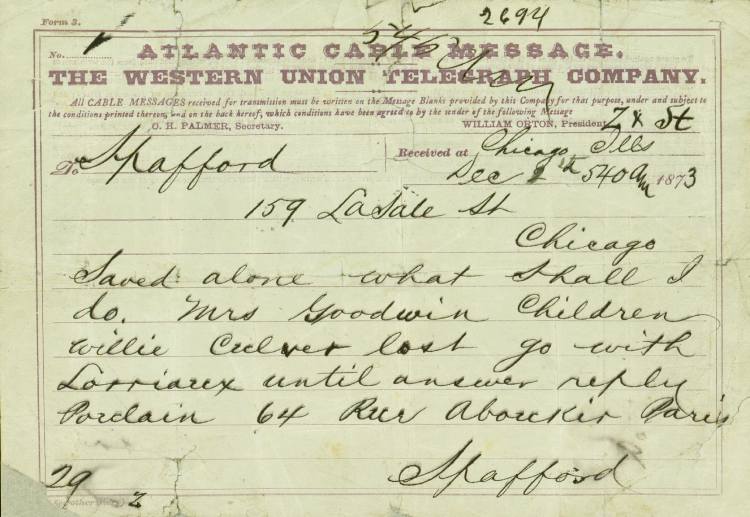 2694
Form 3.
No.
ATLANTIC CABLE MESSAGE.
THE WESTERN UNION TELEGRAPH COMPANY.
All CABLE MESSAGES received for transmission must be written on the Message Blanks provided by this Company for that purpose, under and subject to
the conditions printed thereon, and on the back hereof, which conditions have been agreed to by the sender of the following Message
O. H. PALMER, Secretary. WILLIAM ORTON, President.
To Spafford
Received at Chicago Ills
Dec 540 am 1873
159 LaSale St
Chicago
Saved alone what shall I
do. Mrs Goodwin Children
Willie Culver lost go with
Lorriaux until answer reply
Porclain 64 Rue Aboukir Paris
Spafford
29 2